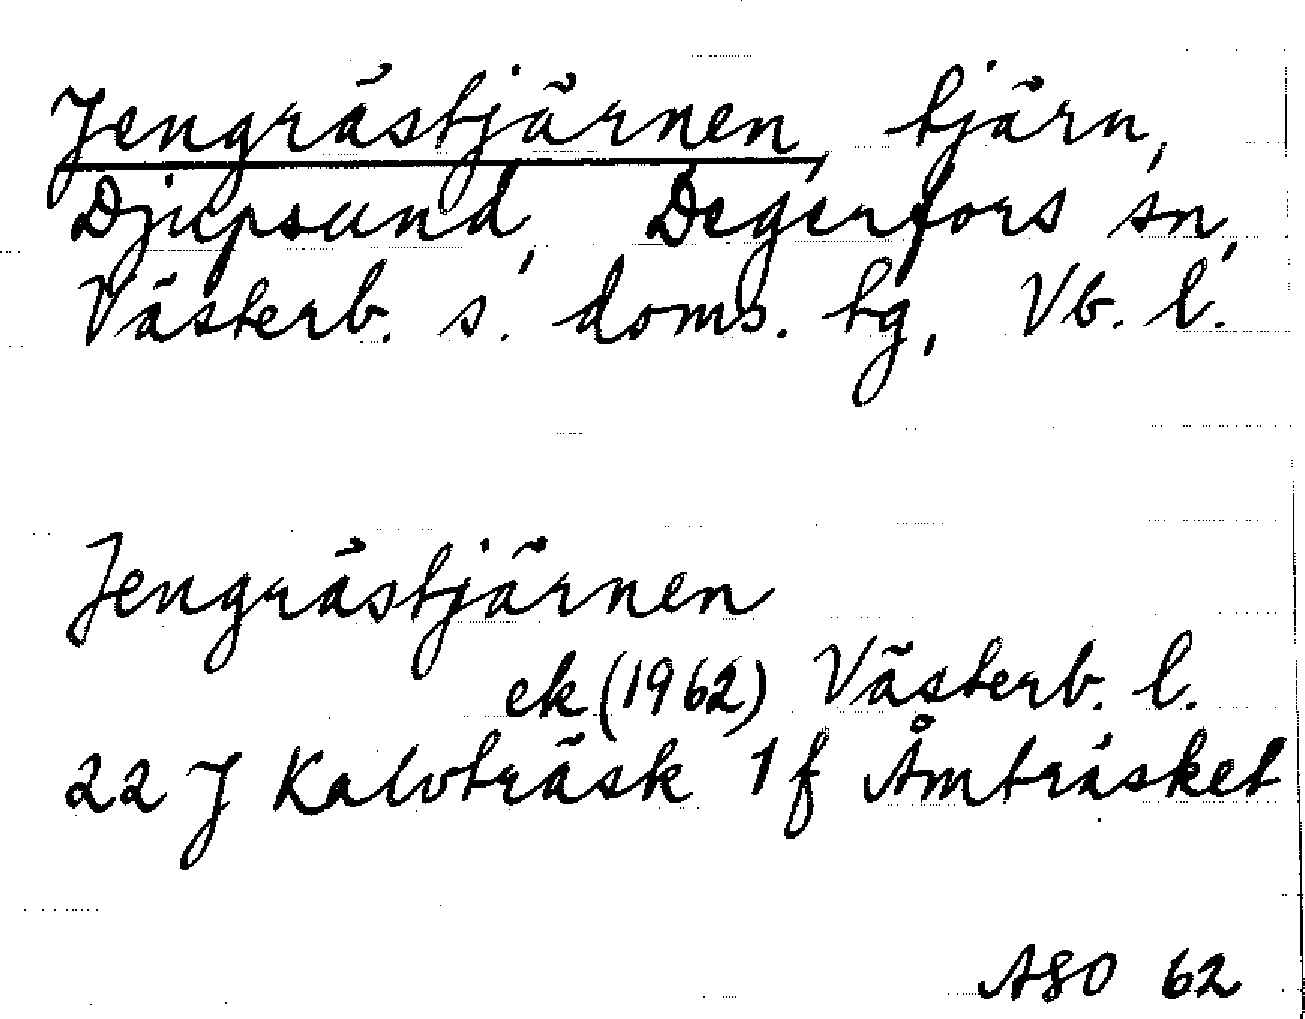 Jengrästjärnen, tjärn,
Djupsund, Degerfors sn,
Västerb. s. doms. tg, Vb. l.
Jengrästjärnen
ek (1962) Västerb. l.
22 J Kalvträsk 1 f Åmträsket
ASO 62